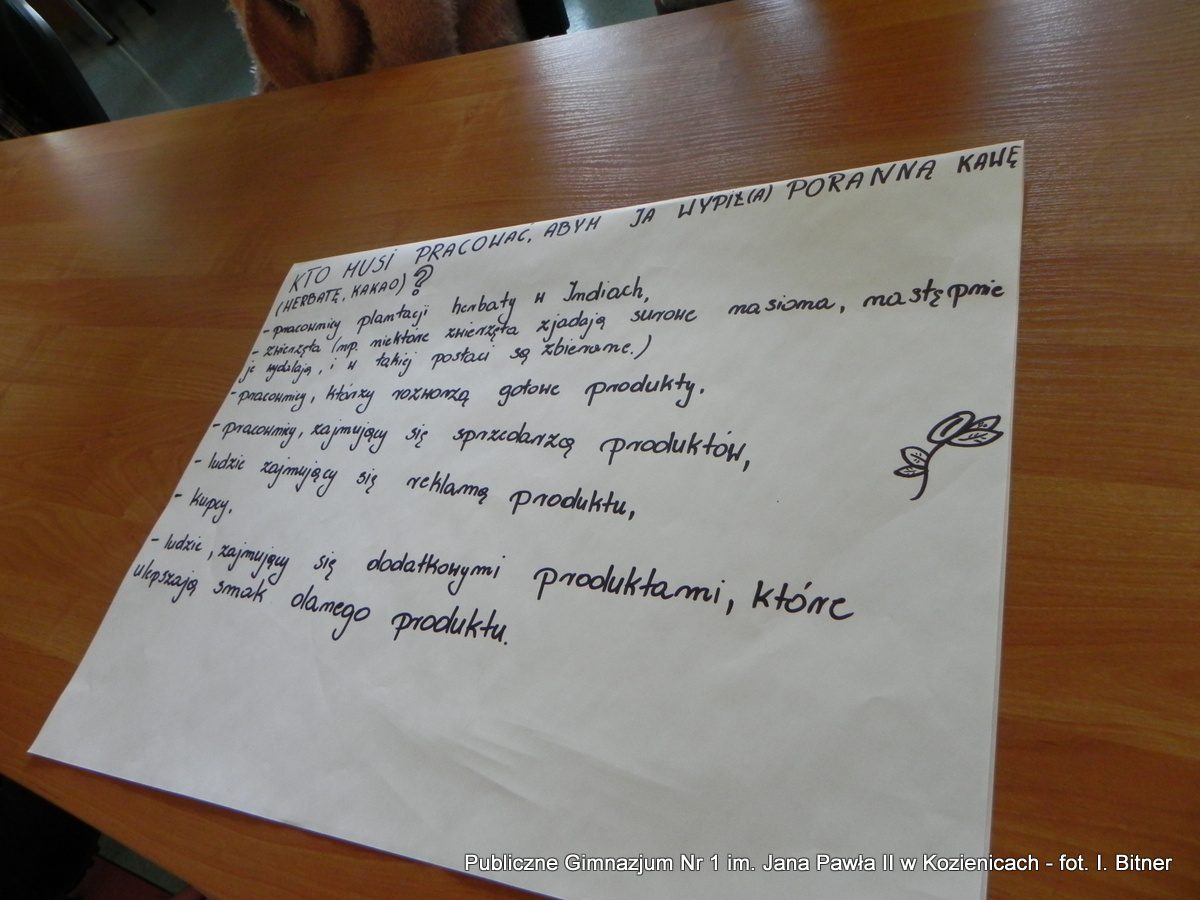 KTO MUSI PRACOWAĆ, ABYM JA WYPIŁ(A) PORANNĄ KAWĘ
(HERBATĘ, KAKAO)?
- pracownicy plantacji herbaty w Indiach,
- zwierzęta (np. niektóre zwierzęta zjadają surowe nasiona, następnie
je wydalają, i w takiej postaci są zbierane.)
- pracownicy, którzy rozworzą gotowe produkty.
- pracownicy, zajmujący się sprzedarzą produktów,
- ludzie zajmujący się reklamą produktu,
- kupcy.
- ludzie, zajmujący się dodatkowymi produktami, które
ulepszają smak danego produktu.
Publiczne Gimnazjum Nr 1 im. Jana Pawła II w Kozienicach - fot. I. Bitner